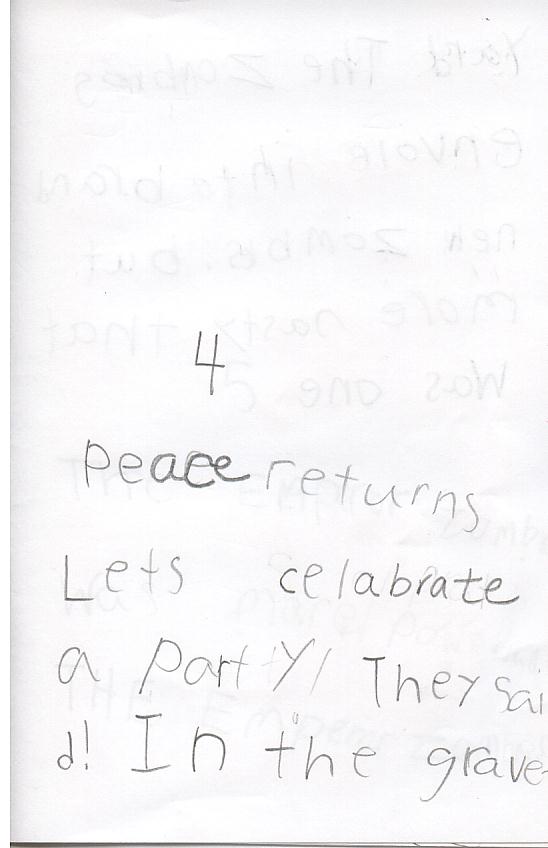 4
Peace returns
Lets celabrate
a party! They sai
d! In the grave-